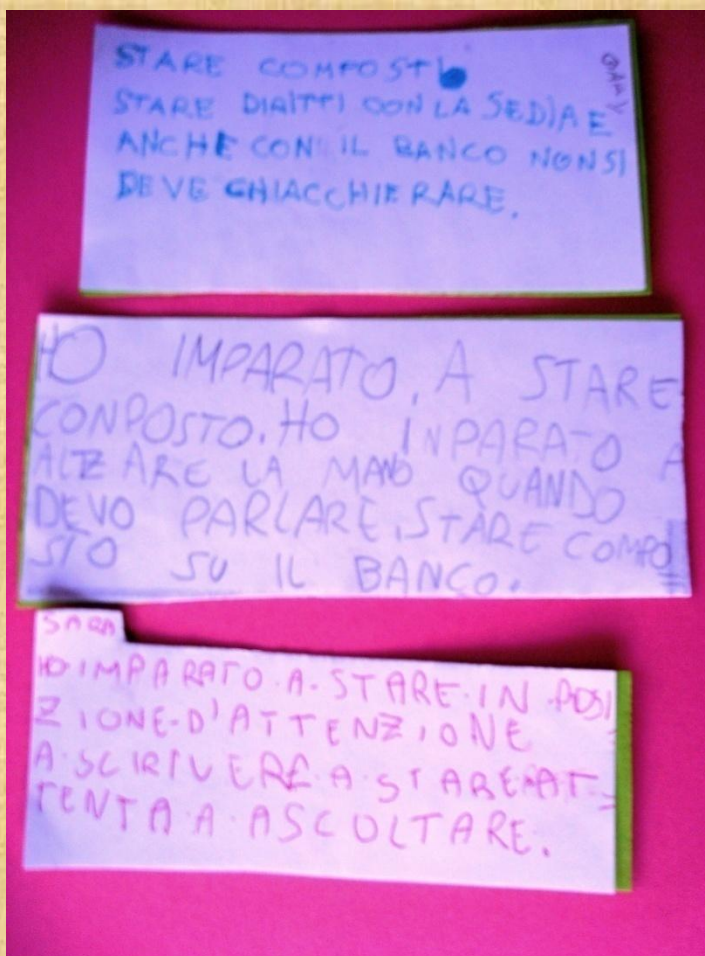 STARE COMPOSTI
STARE DIRITTI CON LA SEDIA E
ANCHE CON IL BANCO NON SI
DEVE CHIACCHIERARE.
HO IMPARATO. A STARE
CONPOSTO. HO INPARATO A
ALZARE LA MANO QUANDO
DEVO PARLARE. STARE COMPO
STO SU IL BANCO.
SARA
HO IMPARATO. A. STARE. IN. POSI
ZIONE. D'ATTENZIONE
A. SCIRIVERE. A. STARE. AT
TENTA. A. ASCOLTARE.